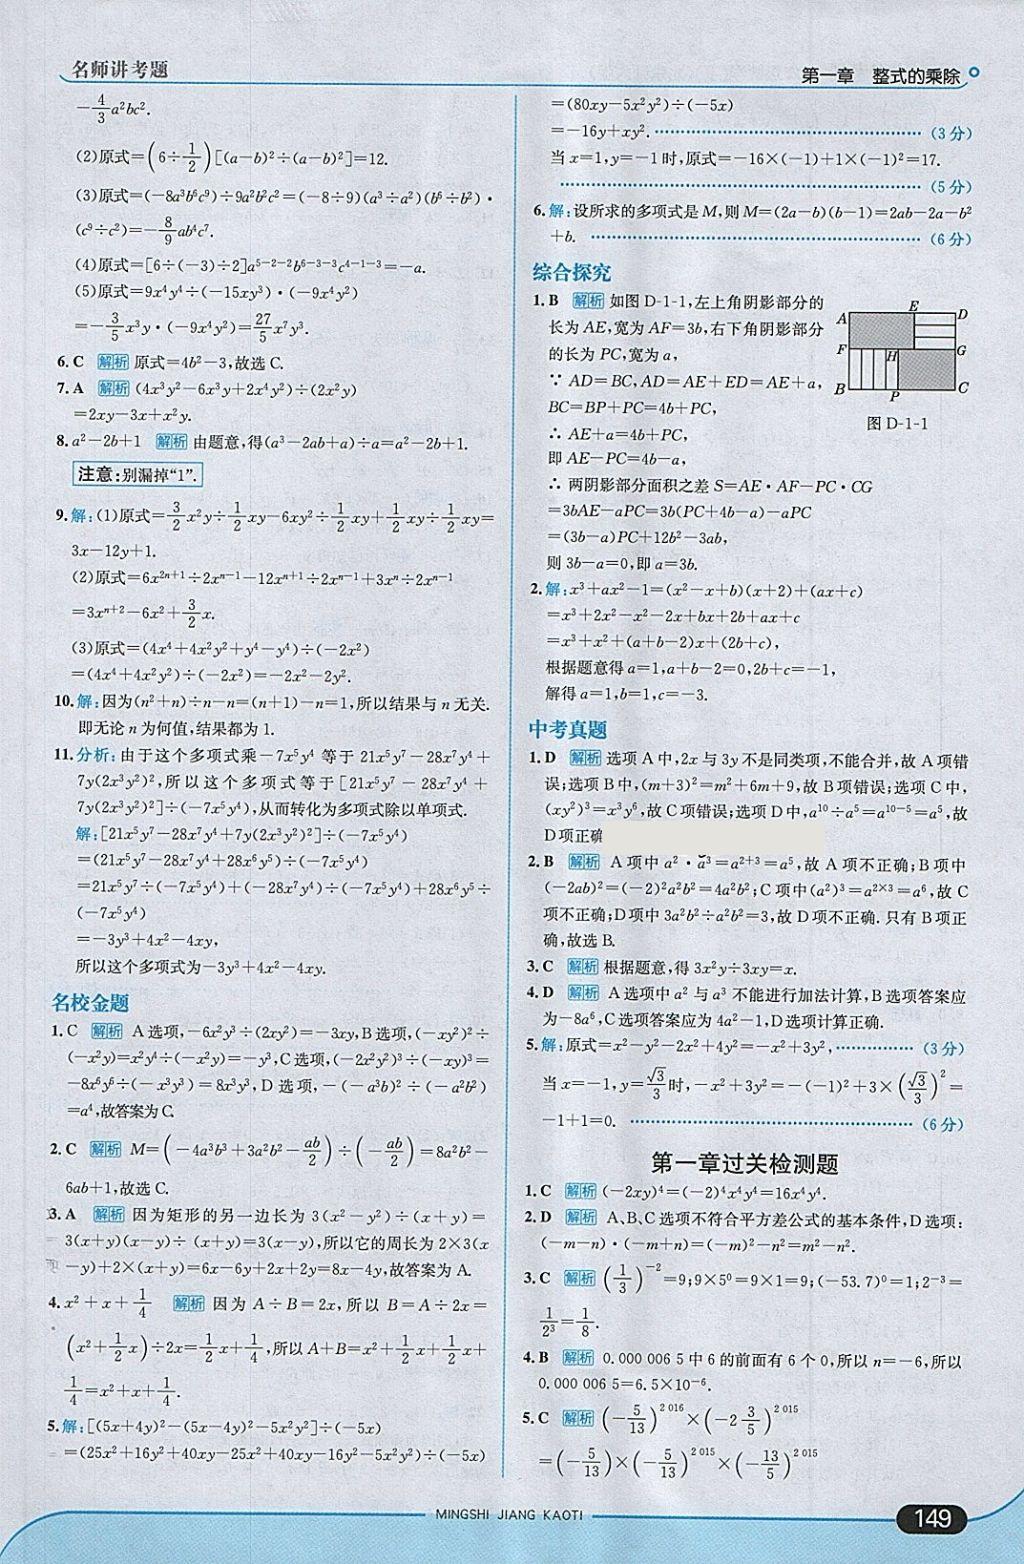 名师讲考题
第一章　整式的乘除
－4/3a²bc².
(2)原式＝(6÷1/2)[(a－b)²÷(a－b)²]＝12.
(3)原式＝(－8a³b⁶c⁹)÷9a²b²c²＝(－8÷9)(a³÷a²)(b⁶÷b²)·
(c⁹÷c²)＝－8/9ab⁴c⁷.
(4)原式＝[6÷(－3)÷2]a⁵⁻²⁻²b⁶⁻³⁻³c⁴⁻¹⁻³＝－a.
(5)原式＝9x⁴y⁴÷(－15xy³)·(－9x⁴y²)
＝－3/5x³y·(－9x⁴y²)＝27/5x⁷y³.
6.C　解析　原式＝4b²－3,故选C.
7.A　解析　(4x³y²－6x³y＋2x⁴y²)÷(2x²y)
＝2xy－3x＋x²y.
8.a²－2b＋1　解析　由题意,得(a³－2ab＋a)÷a＝a²－2b＋1.
注意:别漏掉“1”.
9.解:(1)原式＝3/2x²y÷1/2xy－6xy²÷1/2xy＋1/2xy÷1/2xy＝
3x－12y＋1.
(2)原式＝6x²ⁿ⁺¹÷2xⁿ⁻¹－12xⁿ⁺¹÷2xⁿ⁻¹＋3xⁿ÷2xⁿ⁻¹
＝3xⁿ⁺²－6x²＋3/2x.
(3)原式＝(4x⁴＋4x²y²＋y⁴－y⁴)÷(－2x²)
＝(4x⁴＋4x²y²)÷(－2x²)＝－2x²－2y².
10.解:因为(n²＋n)÷n－n＝(n＋1)－n＝1,所以结果与n无关.
即无论n为何值,结果都为1.
11.分析:由于这个多项式乘－7x⁵y⁴等于21x⁵y⁷－28x⁷y⁴＋
7y(2x³y²)²,所以这个多项式等于[21x⁵y⁷－28x⁷y⁴＋
7y(2x³y²)²]÷(－7x⁵y⁴),从而转化为多项式除以单项式.
解:[21x⁵y⁷－28x⁷y⁴＋7y(2x³y²)²]÷(－7x⁵y⁴)
＝(21x⁵y⁷－28x⁷y⁴＋28x⁶y⁵)÷(－7x⁵y⁴)
＝21x⁵y⁷÷(－7x⁵y⁴)＋(－28x⁷y⁴)÷(－7x⁵y⁴)＋28x⁶y⁵÷
(－7x⁵y⁴)
＝－3y³＋4x²－4xy,
所以这个多项式为－3y³＋4x²－4xy.
名校金题
1.C　解析　A选项,－6x²y³÷(2xy²)＝－3xy,B选项,(－xy²)²÷
(－x²y)＝x²y⁴÷(－x²y)＝－y³,C选项,(－2x²y²)³÷(－xy)³＝
－8x⁶y⁶÷(－x³y³)＝8x³y³,D选项,－(－a³b)²÷(－a²b²)
＝a⁴,故答案为C.
2.C　解析　M＝(－4a³b³＋3a²b²－ab/2)÷(－ab/2)＝8a²b²－
6ab＋1,故选C.
3.A　解析　因为矩形的另一边长为3(x²－y²)÷(x＋y)＝
3(x＋y)(x－y)÷(x＋y)＝3(x－y),所以它的周长为2×3(x
－y)＋2×(x＋y)＝6x－6y＋2x＋2y＝8x－4y,故答案为A.
4.x²＋x＋1/4　解析　因为A÷B＝2x,所以B＝A÷2x＝
(x²＋1/2x)÷2x＝1/2x＋1/4,所以A＋B＝x²＋1/2x＋1/2x＋
1/4＝x²＋x＋1/4.
5.解:[(5x＋4y)²－(5x－4y)²－5x²y²]÷(－5x)
＝(25x²＋16y²＋40xy－25x²＋40xy－16y²－5x²y²)÷(－5x)
＝(80xy－5x²y²)÷(－5x)
＝－16y＋xy².(3分)
当x＝1,y＝－1时,原式＝－16×(－1)＋1×(－1)²＝17.
(5分)
6.解:设所求的多项式是M,则M＝(2a－b)(b－1)＝2ab－2a－b²
＋b.(6分)
综合探究
1.B　解析　如图D-1-1,左上角阴影部分的
长为AE,宽为AF＝3b,右下角阴影部分
的长为PC,宽为a,
∵AD＝BC,AD＝AE＋ED＝AE＋a,
BC＝BP＋PC＝4b＋PC,
∴AE＋a＝4b＋PC,
即AE－PC＝4b－a,
∴两阴影部分面积之差S＝AE·AF－PC·CG
＝3bAE－aPC＝3b(PC＋4b－a)－aPC
＝(3b－a)PC＋12b²－3ab,
则3b－a＝0,即a＝3b.
A E D
F H G
B P C
图D-1-1
2.解:x³＋ax²－1＝(x²－x＋b)(x＋2)＋(ax＋c)
＝x³＋2x²－x²－2x＋bx＋2b＋ax＋c
＝x³＋x²＋(a＋b－2)x＋(2b＋c),
根据题意得a＝1,a＋b－2＝0,2b＋c＝－1,
解得a＝1,b＝1,c＝－3.
中考真题
1.D　解析　选项A中,2x与3y不是同类项,不能合并,故A项错
误;选项B中,(m＋3)²＝m²＋6m＋9,故B项错误;选项C中,
(xy²)³＝x³y⁶,故C项错误;选项D中,a¹⁰÷a⁵＝a¹⁰⁻⁵＝a⁵,故
D项正确
2.B　解析　A项中a²·a³＝a²⁺³＝a⁵,故A项不正确;B项中
(－2ab)²＝(－2)²a²b²＝4a²b²;C项中(a²)³＝a²ˣ³＝a⁶,故C
项不正确;D项中3a²b²÷a²b²＝3,故D项不正确.只有B项正
确,故选B.
3.C　解析　根据题意,得3x²y÷3xy＝x.
4.D　解析　A选项中a²与a³不能进行加法计算,B选项答案应
为－8a⁶,C选项答案应为4a²－1,D选项计算正确.
5.解:原式＝x²－y²－2x²＋4y²＝－x²＋3y²,(3分)
当x＝－1,y＝√3/3时,－x²＋3y²＝－(－1)²＋3×(√3/3)²＝
－1＋1＝0.(6分)
第一章过关检测题
1.C　解析　(－2xy)⁴＝(－2)⁴x⁴y⁴＝16x⁴y⁴.
2.D　解析　A、B、C选项不符合平方差公式的基本条件,D选项:
(－m－n)·(－m＋n)＝(－m)²－n²＝m²－n².
3.C　解析　(1/3)⁻²＝9;9×5⁰＝9×1＝9;(－53.7)⁰＝1;2⁻³＝
1/2³＝1/8.
4.B　解析　0.000 006 5中6的前面有6个0,所以n＝－6,所以
0.000 006 5＝6.5×10⁻⁶.
5.C　解析　(－5/13)²⁰¹⁶×(－2 3/5)²⁰¹⁵
＝(－5/13)×(－5/13)²⁰¹⁵×(－13/5)²⁰¹⁵
MINGSHI JIANG KAOTI
149